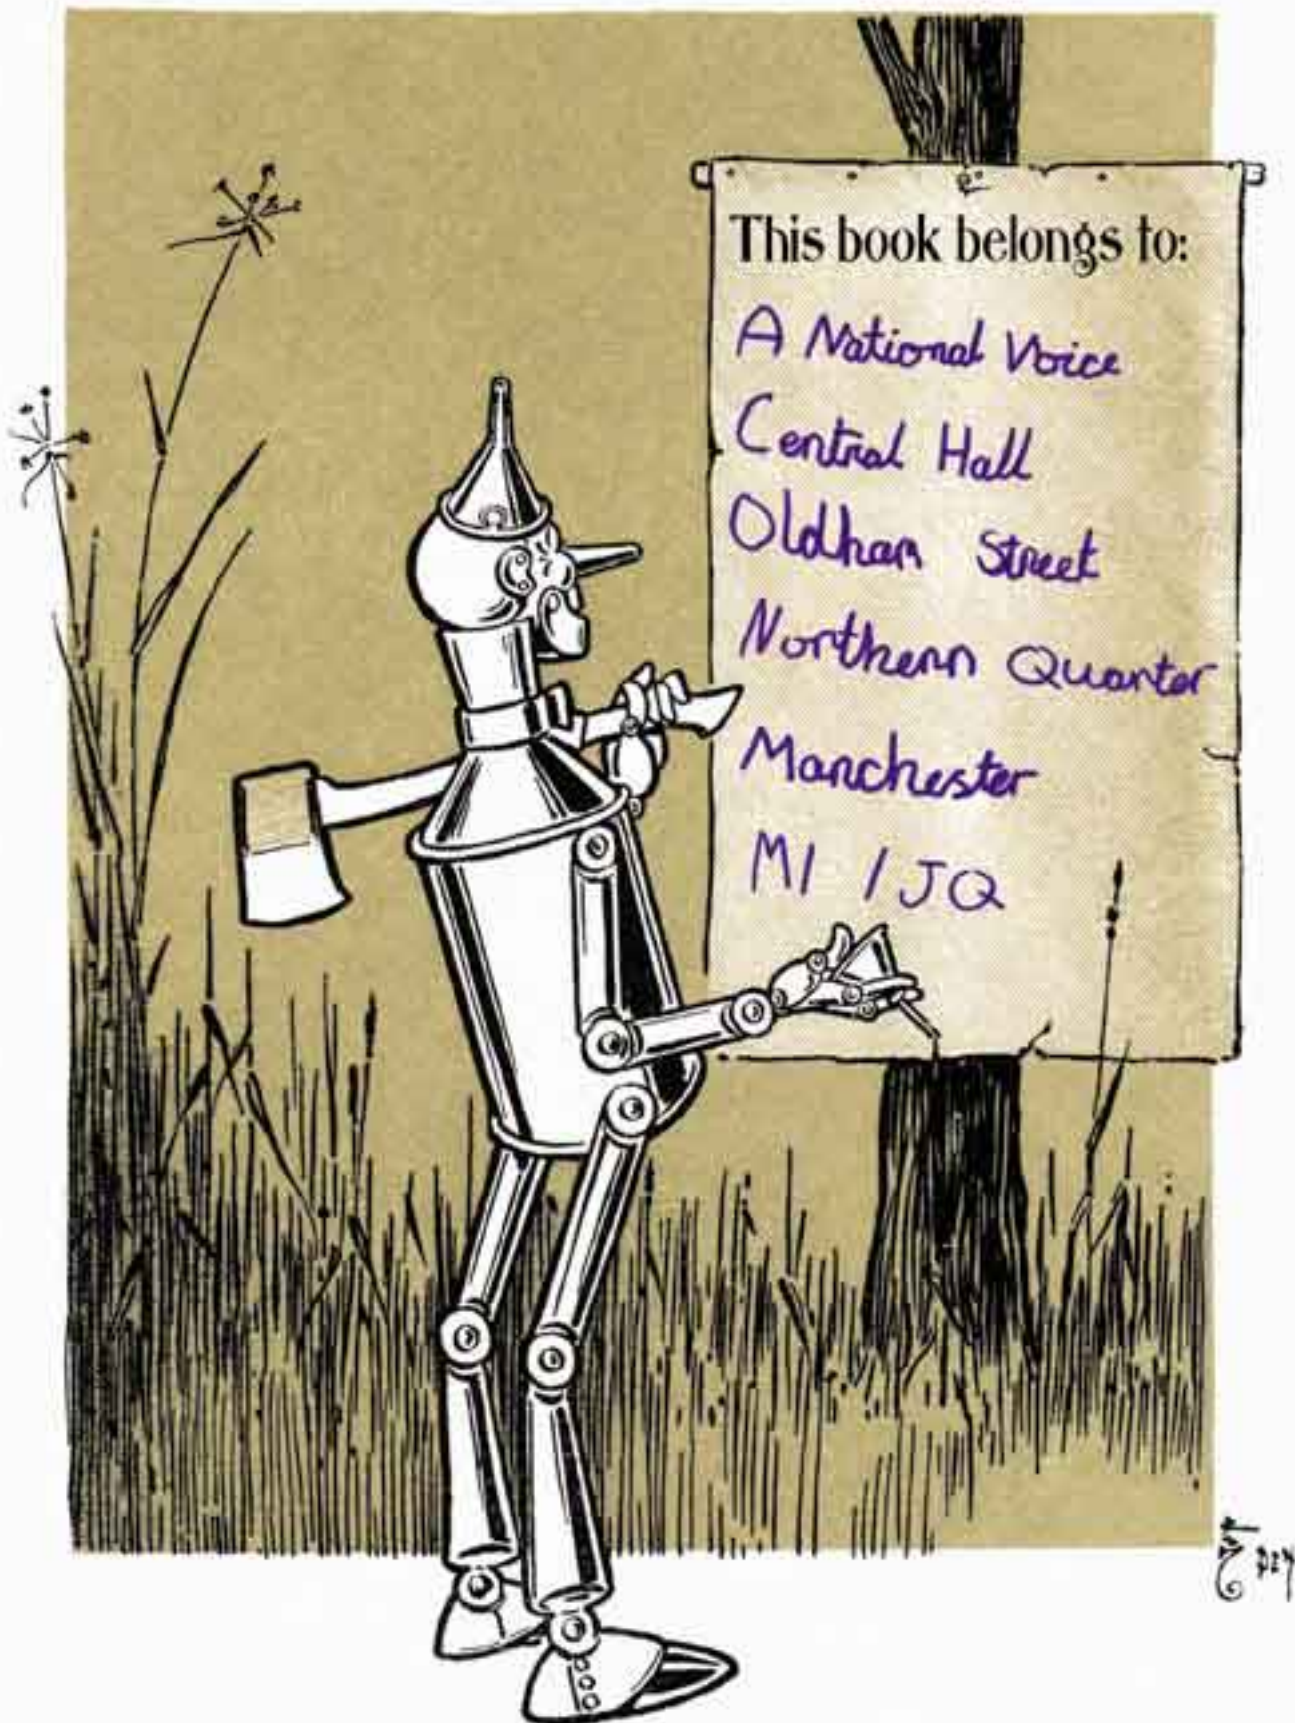 This book belongs to:
A National Voice
Central Hall
Oldham Street
Northern Quarter
Manchester
M1 1JQ